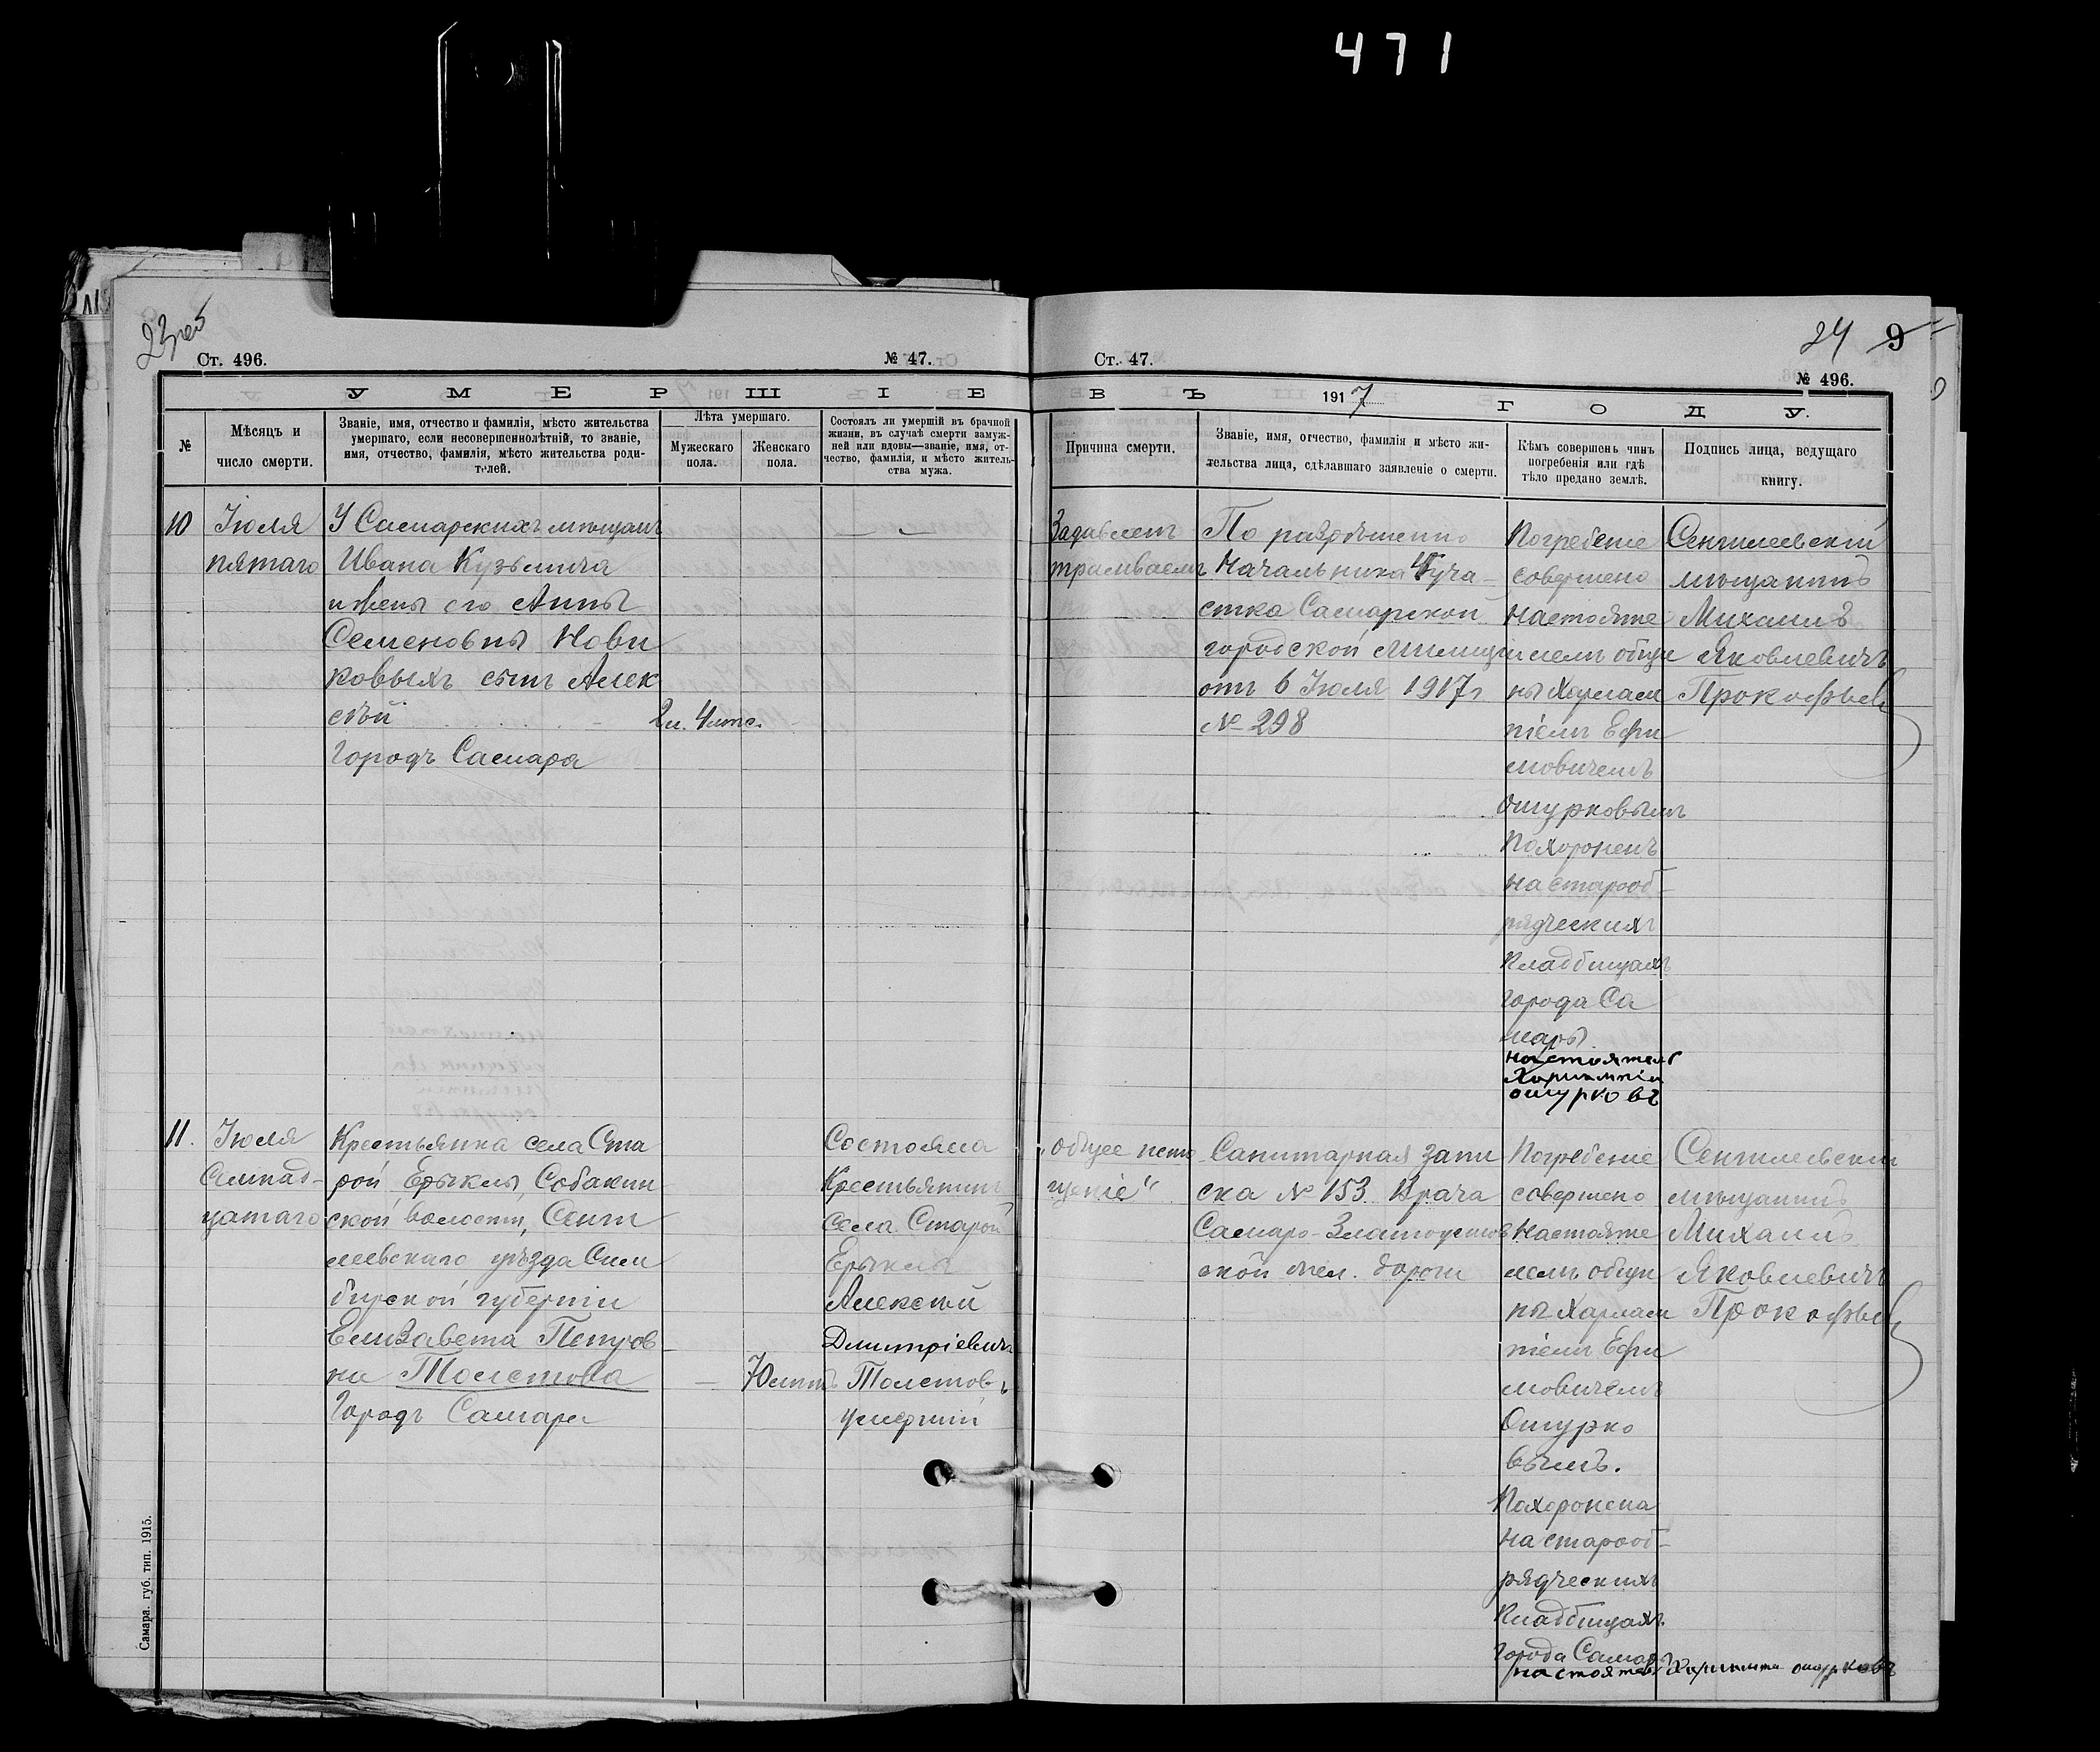 471
23 роб
24 9
Ст. 496.
№ 47.
Ст. 47.
№ 496.
УМЕРШІЕ
ВЪ 1917 ГОДУ.
№
Мѣсяцъ и
число смерти.
Званіе, имя, отчество и фамилія, мѣсто жительства
умершаго, если несовершеннолѣтній, то званіе,
имя, отчество, фамилія, мѣсто жительства роди-
телей.
Лѣта умершаго.
Мужескаго
пола.
Женскаго
пола.
Состоялъ ли умершій въ брачной
жизни, въ случаѣ смерти замуж-
ней или вдовы—званіе, имя, от-
чество, фамилія, и мѣсто житель-
ства мужа.
Причина смерти.
Званіе, имя, отчество, фамилія и мѣсто жи-
тельства лица, сдѣлавшаго заявленіе о смерти.
Кѣмъ совершенъ чинъ
погребенія или гдѣ
тѣло предано землѣ.
Подпись лица, ведущаго
книгу.
10
Іюля
пятаго
У Самарскихъ мѣщанъ
Ивана Кузьмича
и жены его Анны
Семеновны Нови
ковыхъ сынъ Алек
сѣй
городъ Самара
2 и. 4 мѣс.
Задавленъ
трамваемъ
По разрѣшенію
Начальника 4 уча-
стка Самарской
городской милиціи
отъ 6 Іюля 1917 г
№ 298
Погребеніе
совершено
настояте
лемъ общи
ны Харлам
піемъ Ефи
мовичемъ
Ошурковымъ
Похороненъ
на старооб-
рядческихъ
Кладбищахъ
города Са
мары.
настоятель
Харлампій
ошурковъ
Сенгилеевскій
мѣщанинъ
Михаилъ
Яковлевичъ
Прокофьев
11.
Іюля
Семнад-
цатаго
Крестьянка села Ста
рой Ерыклы, Собакин
ской волости, Сенги
леевскаго уѣзда Сим
бирской губерніи
Елизавета Петров
на Толстова
Городъ Самара
70 лѣтъ
Состояла
Крестьянинъ
села Старой
Ерыклы
Алексѣй
Дмитріевичъ
Толстовъ
умершій
„общее исто
щеніе“
Санитарная запи
ска № 153 Врача
Самаро-Златоустов
ской жел. дороги
Погребеніе
совершено
Настояте
лемъ общи
ны Харлам
піемъ Ефи
мовичемъ
Ошурко
вымъ.
Похоронена
на старооб-
рядческихъ
Кладбищахъ
города Самары
настоятель Харлампій ошурковъ
Сенгилеевскій
мѣщанинъ
Михаилъ
Яковлевичъ
Прокофьев
Самара. губ. тип. 1915.